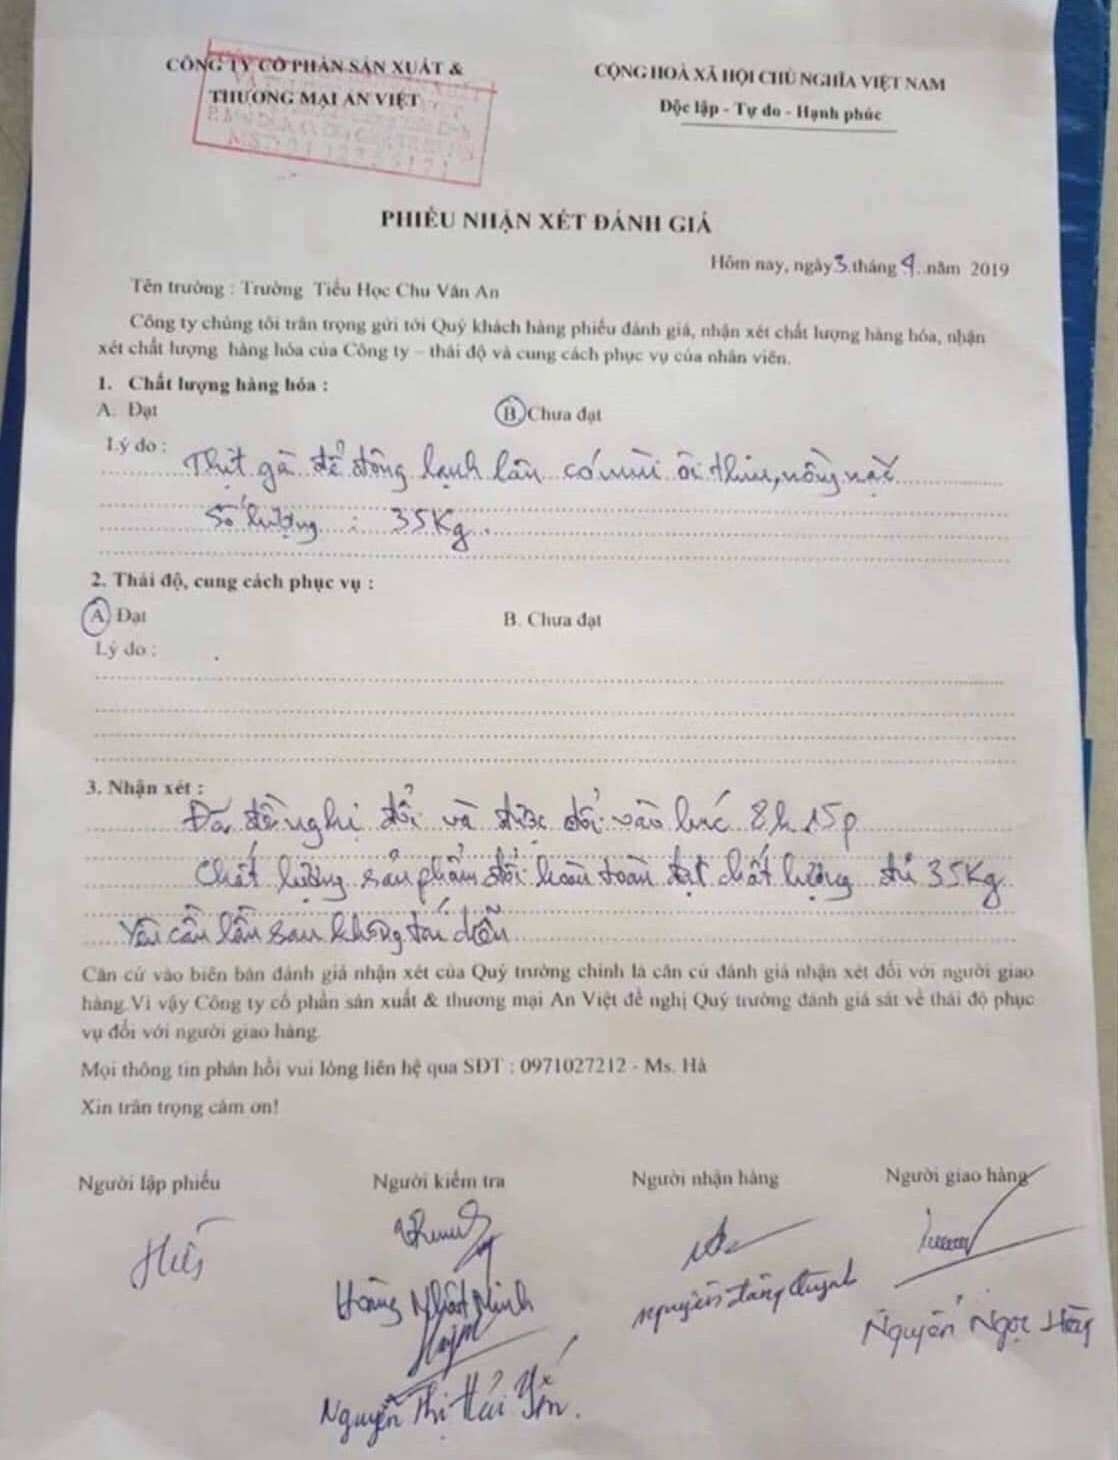 CÔNG TY CỔ PHẦN SẢN XUẤT &
THƯƠNG MẠI AN VIỆT
CỘNG HOÀ XÃ HỘI CHỦ NGHĨA VIỆT NAM
Độc lập - Tự do - Hạnh phúc
PHIẾU NHẬN XÉT ĐÁNH GIÁ
Hôm nay, ngày 3 tháng 4 năm 2019
Tên trường : Trường Tiểu Học Chu Văn An
Công ty chúng tôi trân trọng gửi tới Quý khách hàng phiếu đánh giá, nhận xét chất lượng hàng hóa, nhận
xét chất lượng hàng hóa của Công ty – thái độ và cung cách phục vụ của nhân viên.
1. Chất lượng hàng hóa :
A. Đạt
B Chưa đạt
Lý do : Thịt gà để đông lạnh lâu có mùi ôi thiu, nồng nặc
Số lượng : 35Kg.
2. Thái độ, cung cách phục vụ :
A Đạt
B. Chưa đạt
Lý do :
3. Nhận xét :
Đã đề nghị đổi và được đổi vào lúc 8h15p
Chất lượng sản phẩm đổi hoàn toàn đạt chất lượng đủ 35Kg
Yêu cầu lần sau không tái diễn
Căn cứ vào biên bản đánh giá nhận xét của Quý trường chính là căn cứ đánh giá nhận xét đối với người giao
hàng.Vì vậy Công ty cổ phần sản xuất & thương mại An Việt đề nghị Quý trường đánh giá sát về thái độ phục
vụ đối với người giao hàng.
Mọi thông tin phản hồi vui lòng liên hệ qua SĐT : 0971027212 - Ms. Hà
Xin trân trọng cảm ơn!
Người lập phiếu
Người kiểm tra
Người nhận hàng
Người giao hàng
Hoàng Nhật Minh
Nguyễn Đăng Quỳnh
Nguyễn Ngọc
Nguyễn Thị Hải Yến.